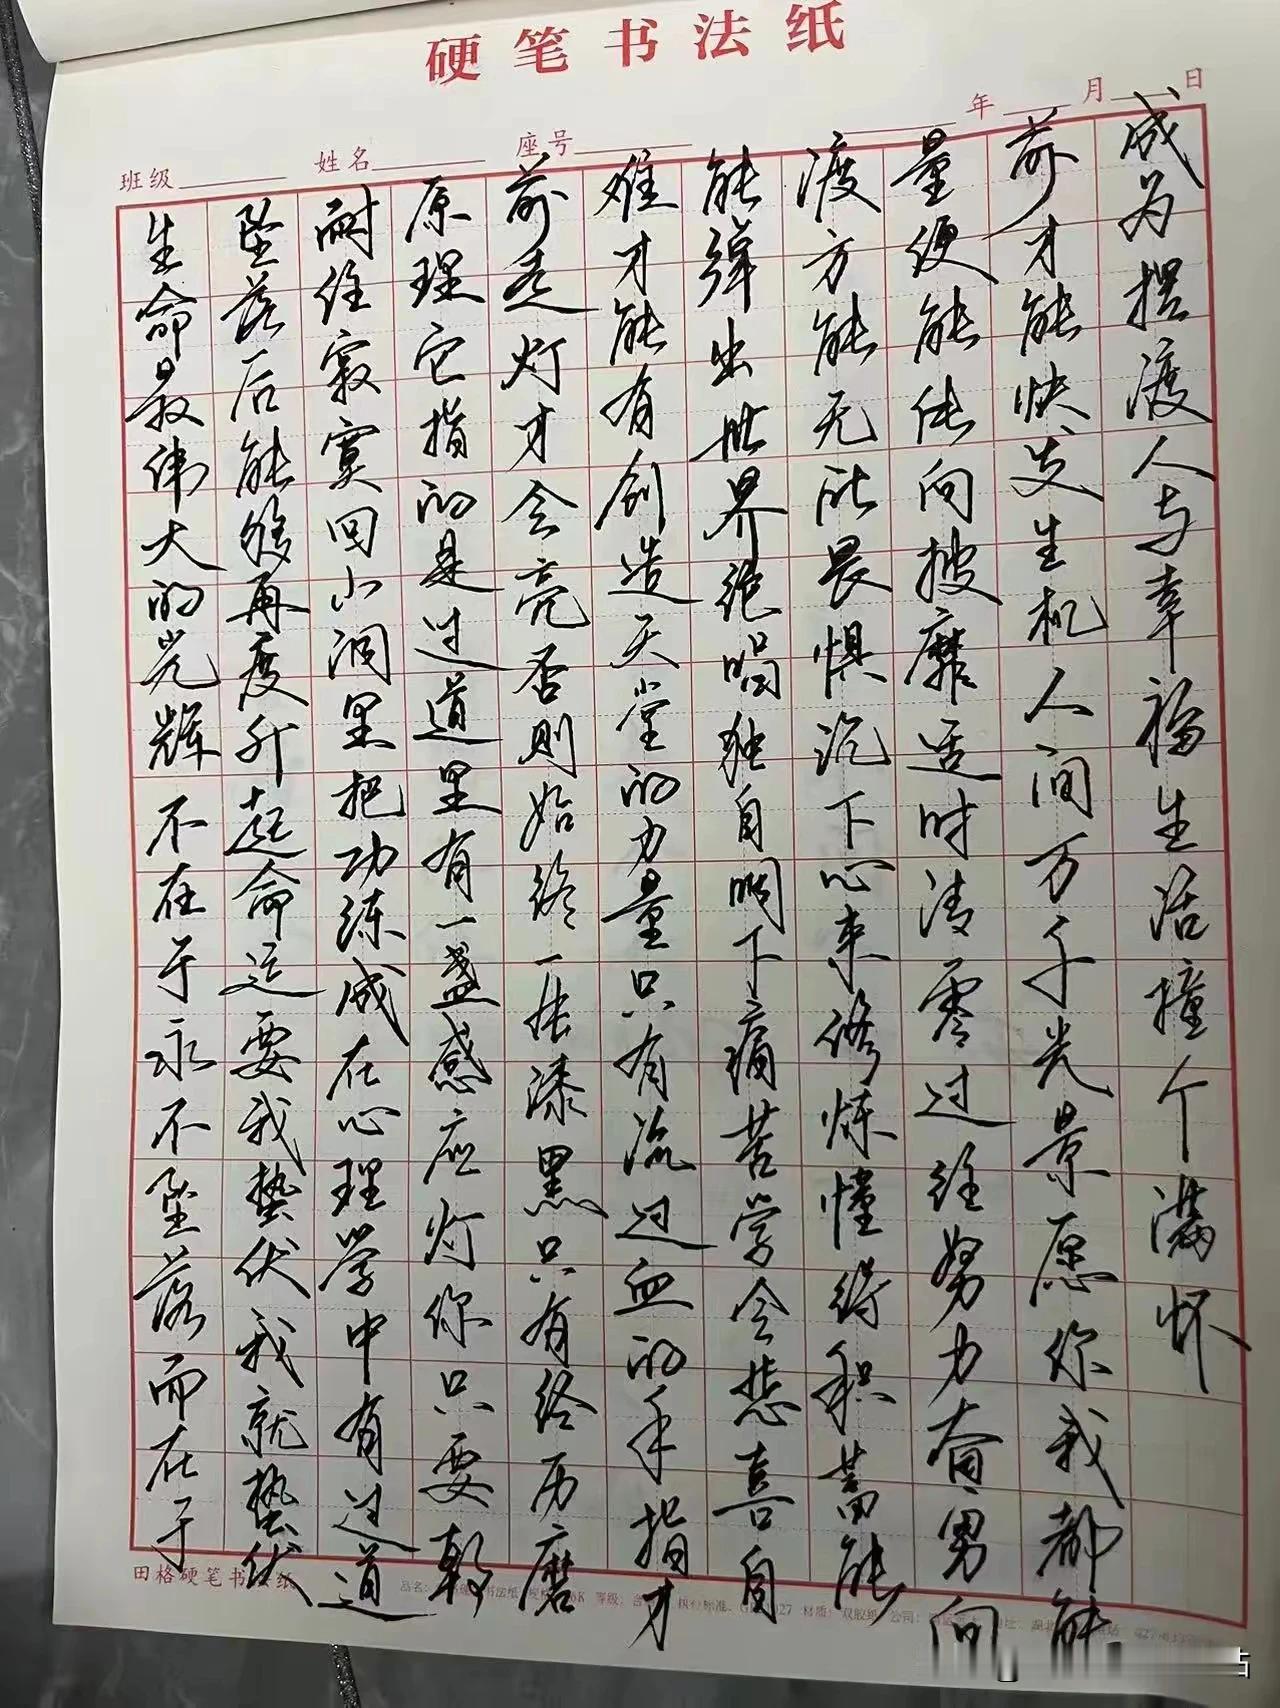 硬笔书法纸
年 月 日
班级 姓名 座号
生命最伟大的光辉不在于永不坠落而在于
坠落后能够再度升起命运要我蛰伏我就蛰伏
耐住寂寞回小洞里把功练成在心理学中有过道
原理它指的是过道里有一盏感应灯你只要朝
前走灯才会亮否则始终一漆黑只有经历磨
难才能有创造天堂的力量只有流过血的手指才
能弹出世界绝唱独自咽下痛苦学会悲喜自
渡方能无所畏惧沉下心来修炼懂得积蓄能
量便能向披靡适时清零过往努力奋勇向
前才能发生机人间万千光景愿你我都能
成为摆渡人与幸福生活撞个满怀
田格硬笔书法纸